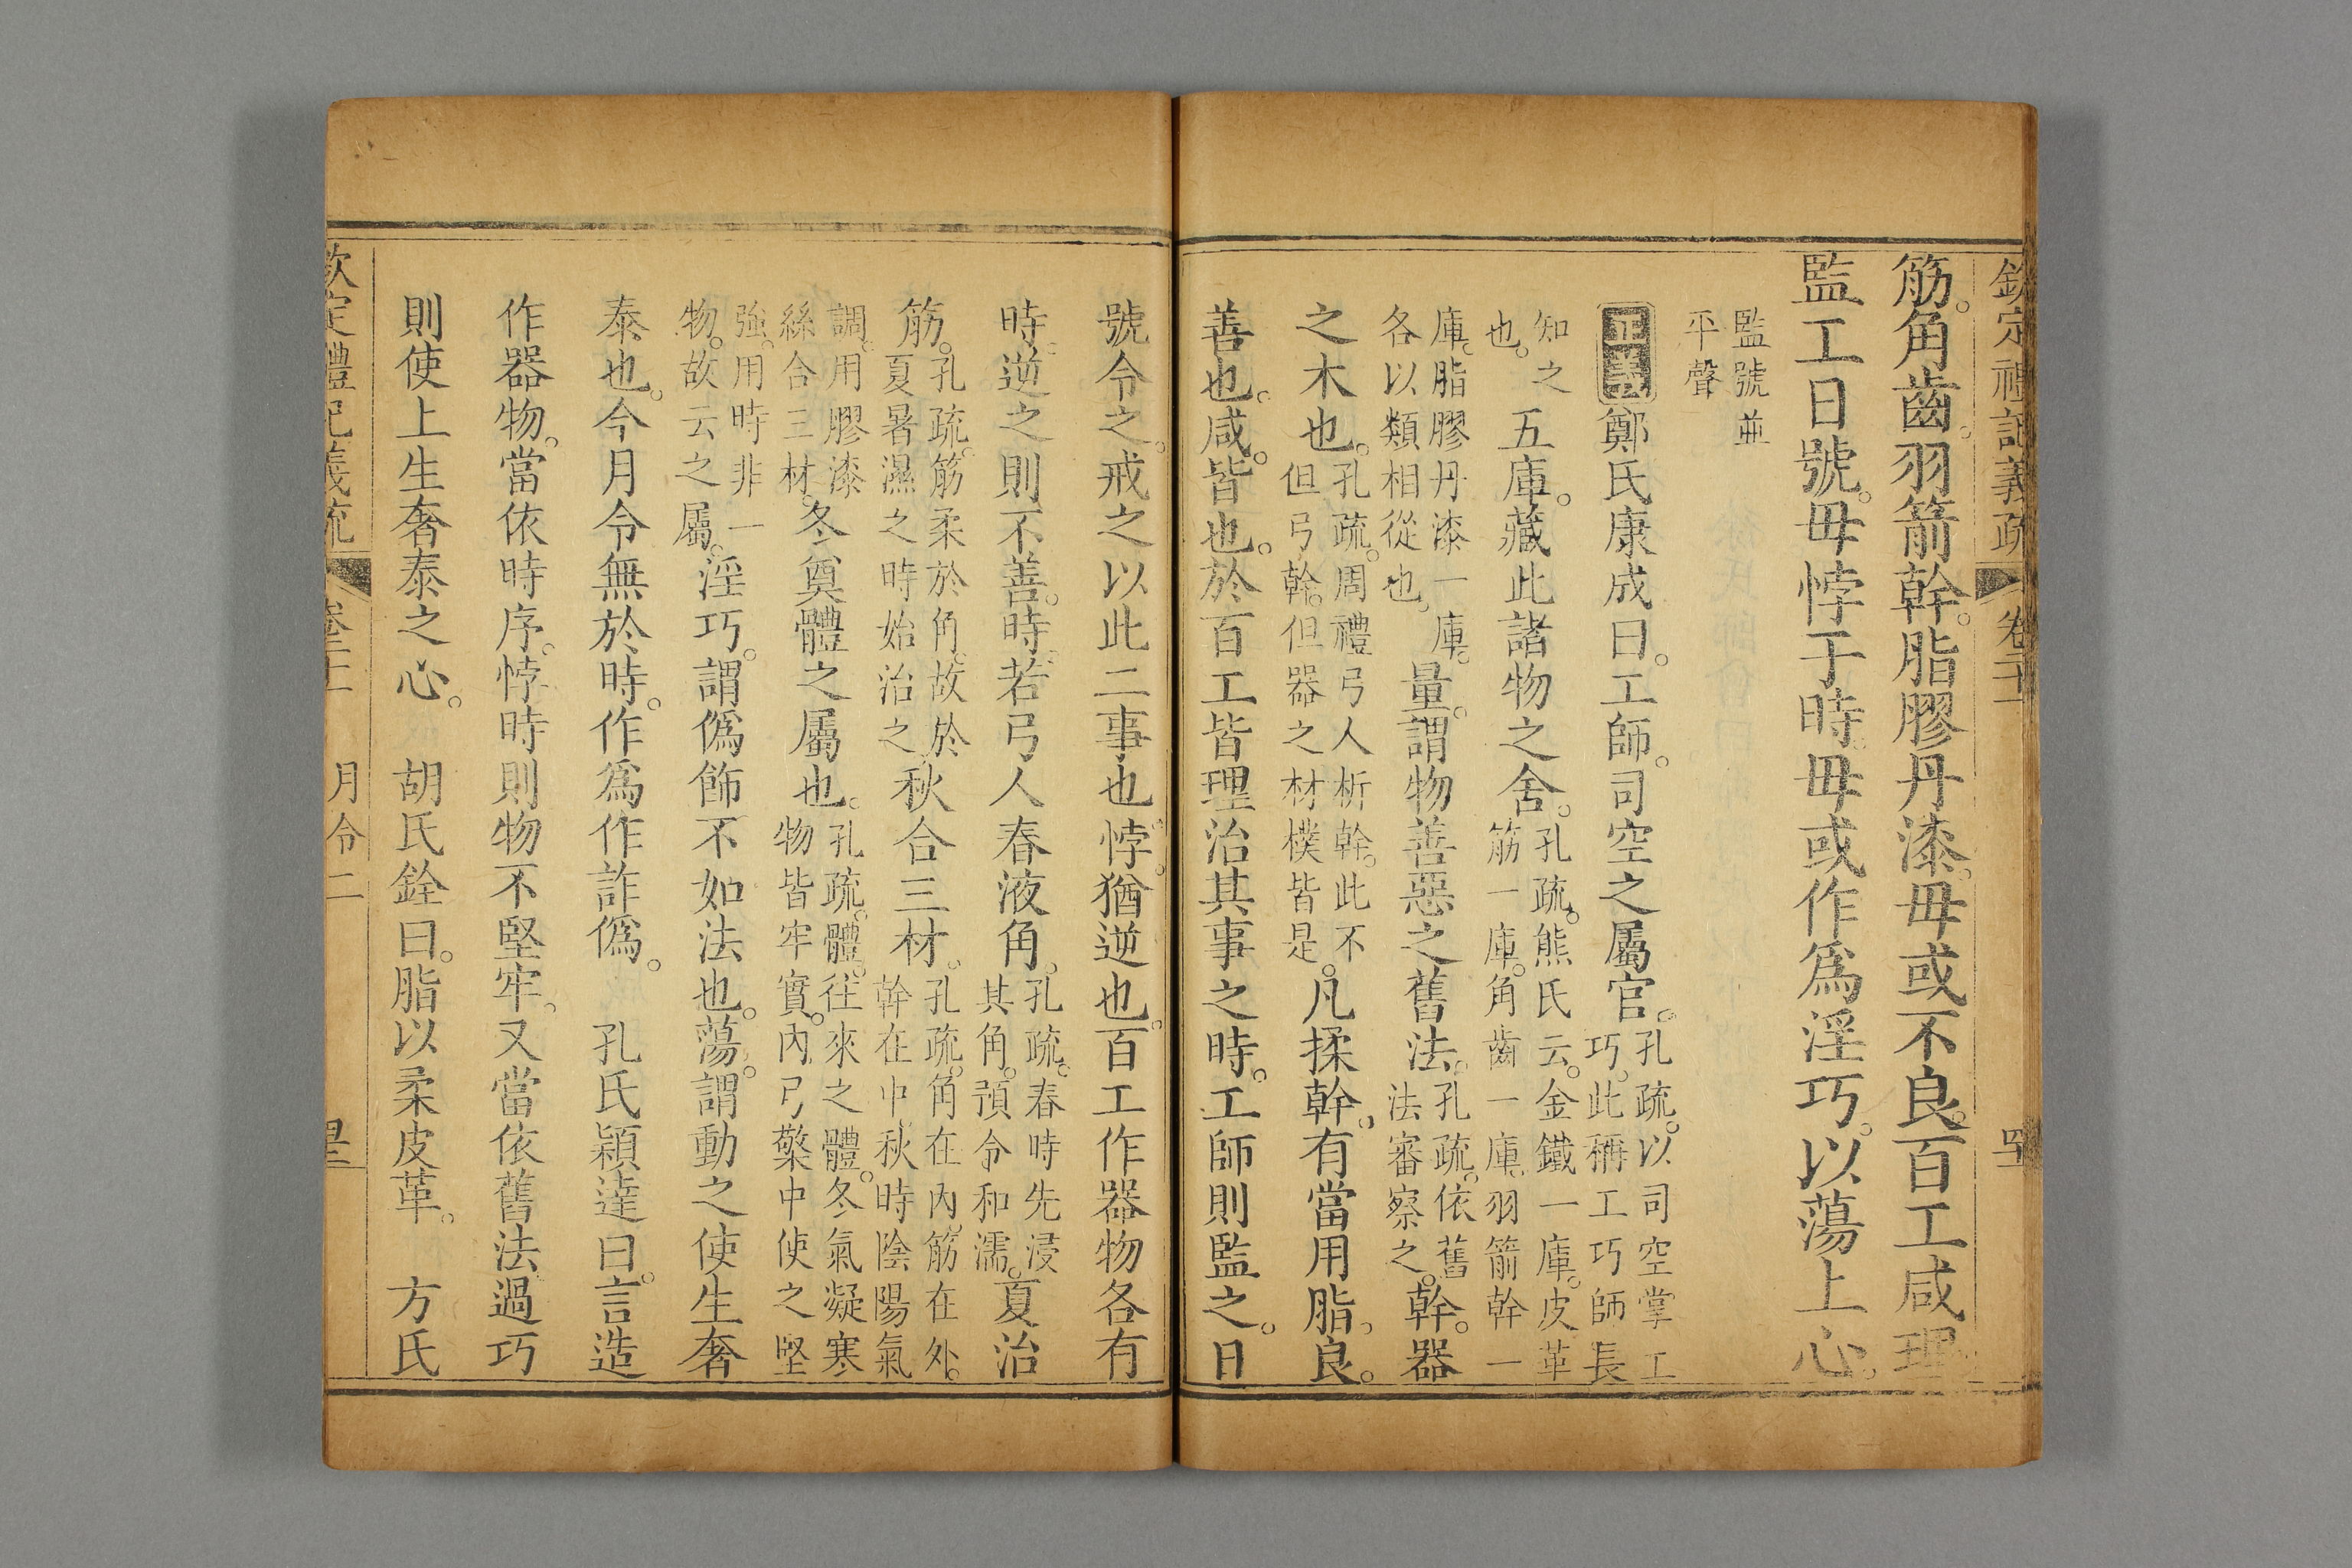 欽定禮記義疏 卷二十一
筋。角齒。羽箭幹。脂膠丹漆。毋或不良。百工咸理。
監工日號。毋悖于時。毋或作爲淫巧。以蕩上心。
監號並
平聲
正義 鄭氏康成曰。工師。司空之屬官。孔疏。以司空掌工巧。此稱工巧師長
知之也。五庫。藏此諸物之舍。孔疏。熊氏云。金鐵一庫。皮革筋一庫。角齒一庫。羽箭幹一
庫。脂膠丹漆一庫。各以類相從也。量。謂物善惡之舊法。孔疏。依舊法審察之。幹。器
之木也。孔疏。周禮弓人析幹。此不但弓幹。但器之材樸皆是。凡揉幹。有當用脂。良。
善也。咸。皆也。於百工皆理治其事之時。工師則監之。日
號令之。戒之以此二事也。悖。猶逆也。百工作器物各有
時。逆之則不善。時若弓人春液角。孔疏。春時先浸其角。預令和濡。夏治
筋。孔疏。筋柔於角。故於夏暑濕之時始治之。秋合三材。孔疏。角在內。筋在外。幹在中。秋時陰陽氣
調。用膠漆絲合三材。冬奠體之屬也。孔疏。體。往來之體。冬氣凝寒物皆牢實。內弓檠中使之堅
強。用時非一物。故云之屬。淫巧。謂僞飾不如法也。蕩。謂動之使生奢
泰也。今月令無於時。作爲作詐僞。 孔氏穎達曰。言造
作器物。當依時序。悖時則物不堅牢。又當依舊法過巧
則使上生奢泰之心。 胡氏銓曰。脂以柔皮革。 方氏
欽定禮記義疏 卷二十一 月令二